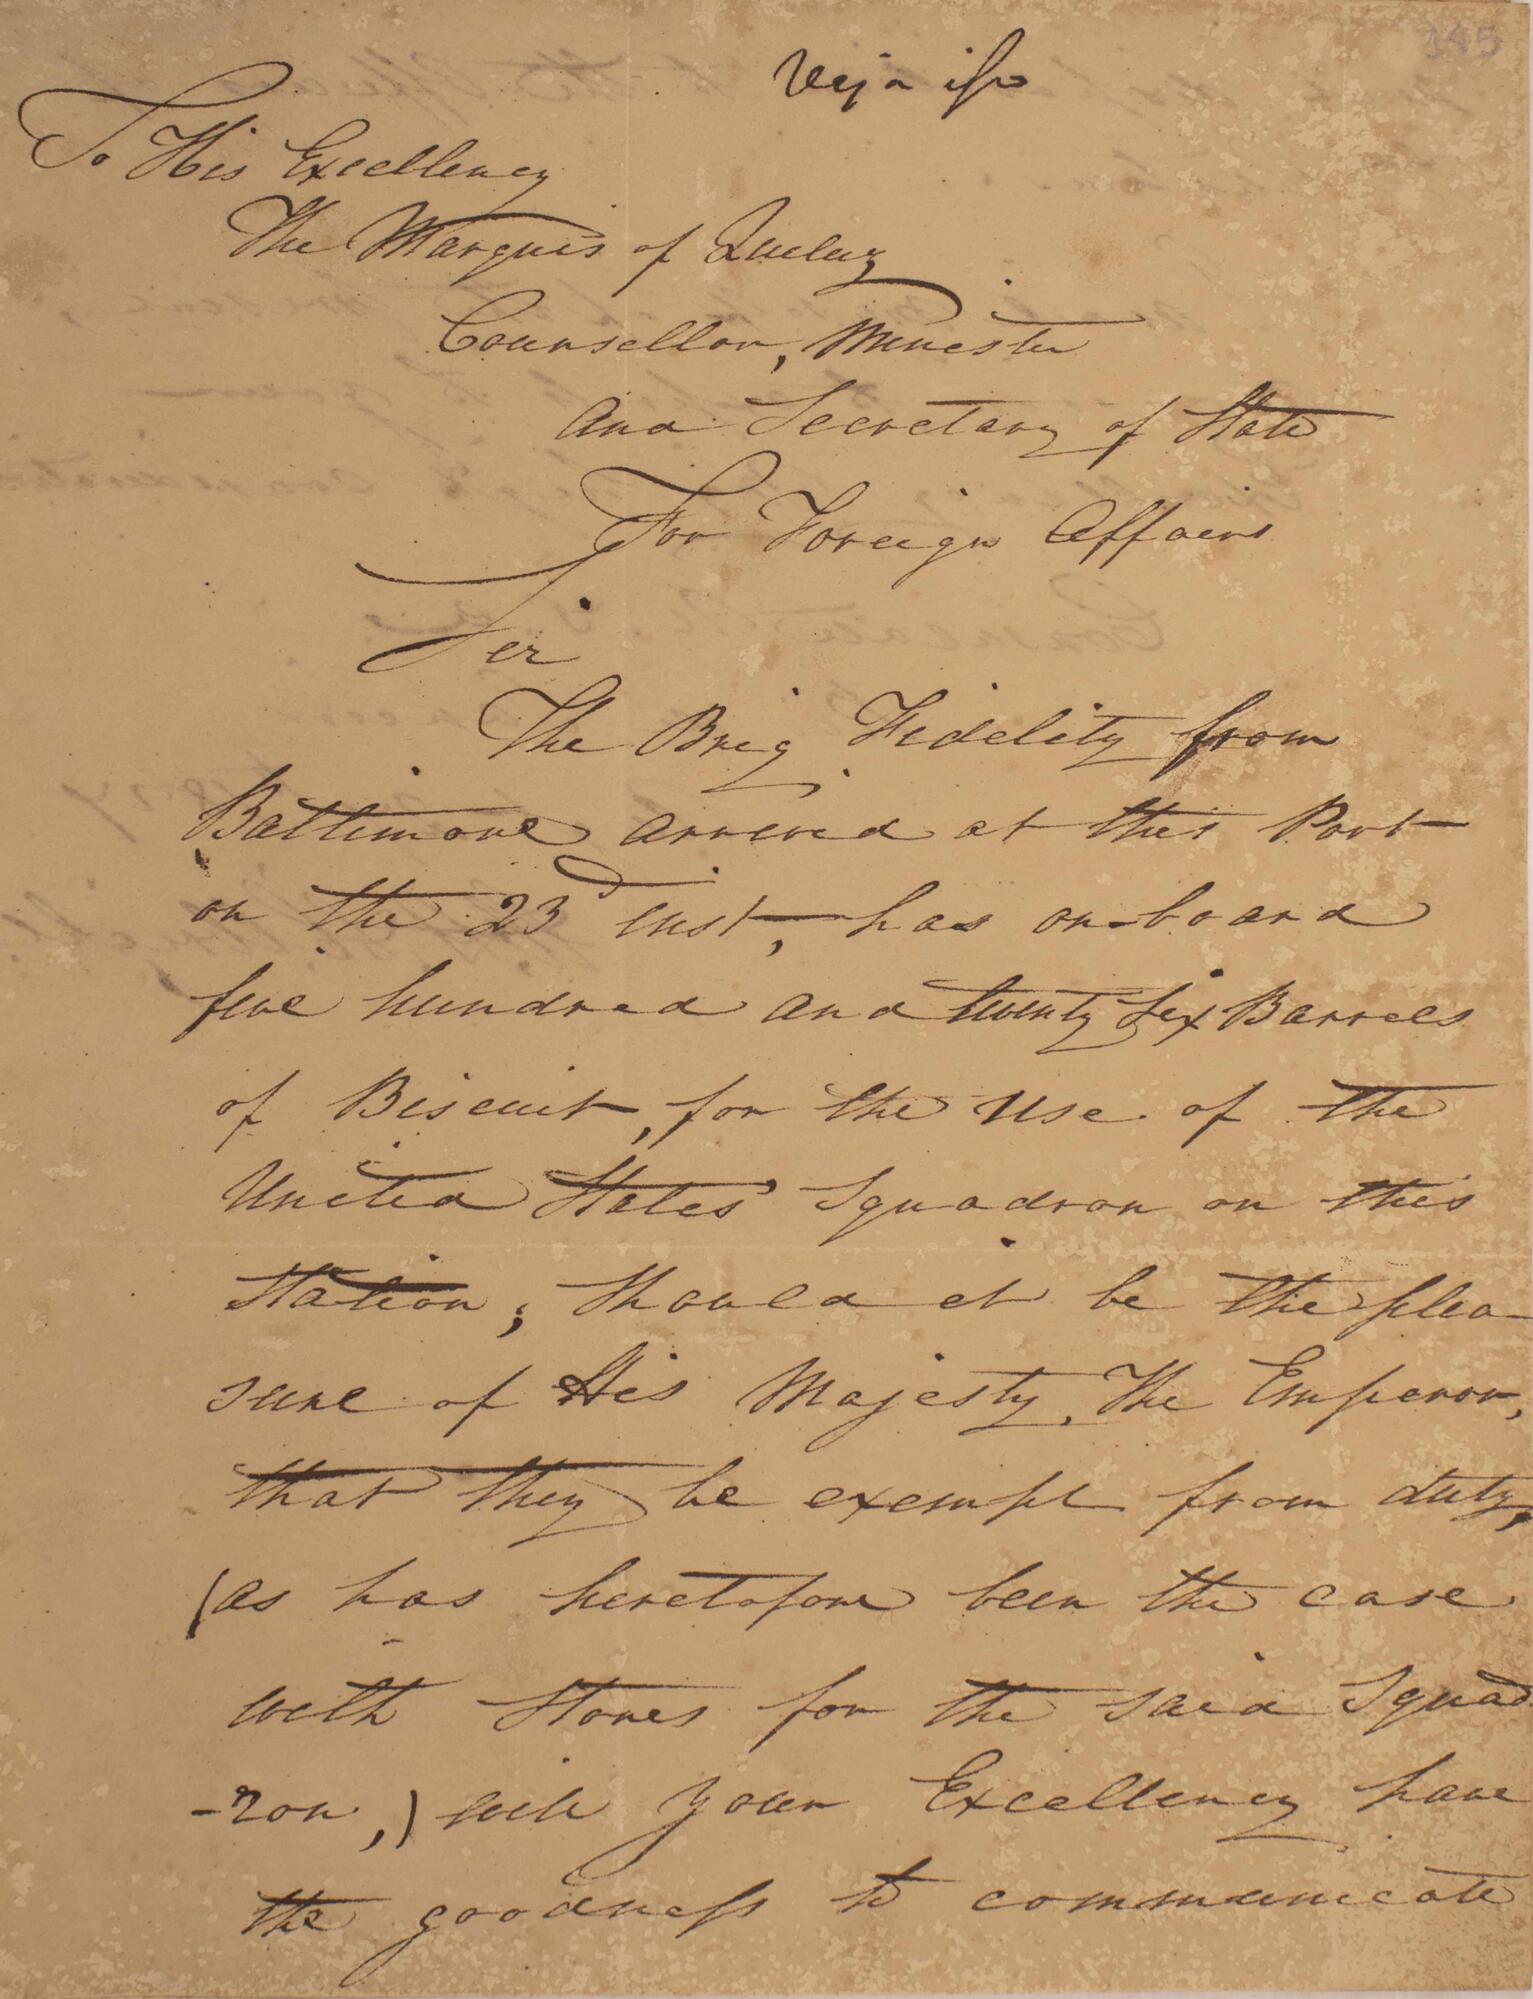 145
Veja isso
To His Excellency
The Marquis of Queluz
Counsellor, Minister
and Secretary of State
For Foreign Affairs
Sir
The Brig Fidelity from
Baltimore arrived at this Port
on the 23d inst, has on board
five hundred and twenty six Barrels
of Biscuit, for the Use of the
United States' Squadron on this
Station; Should it be the plea
sure of His Majesty, The Emperor,
that they be exempt from duty,
(as has heretofore been the case
with Stores for the said Squad
-ron,) will your Excellency have
the goodness to communicate